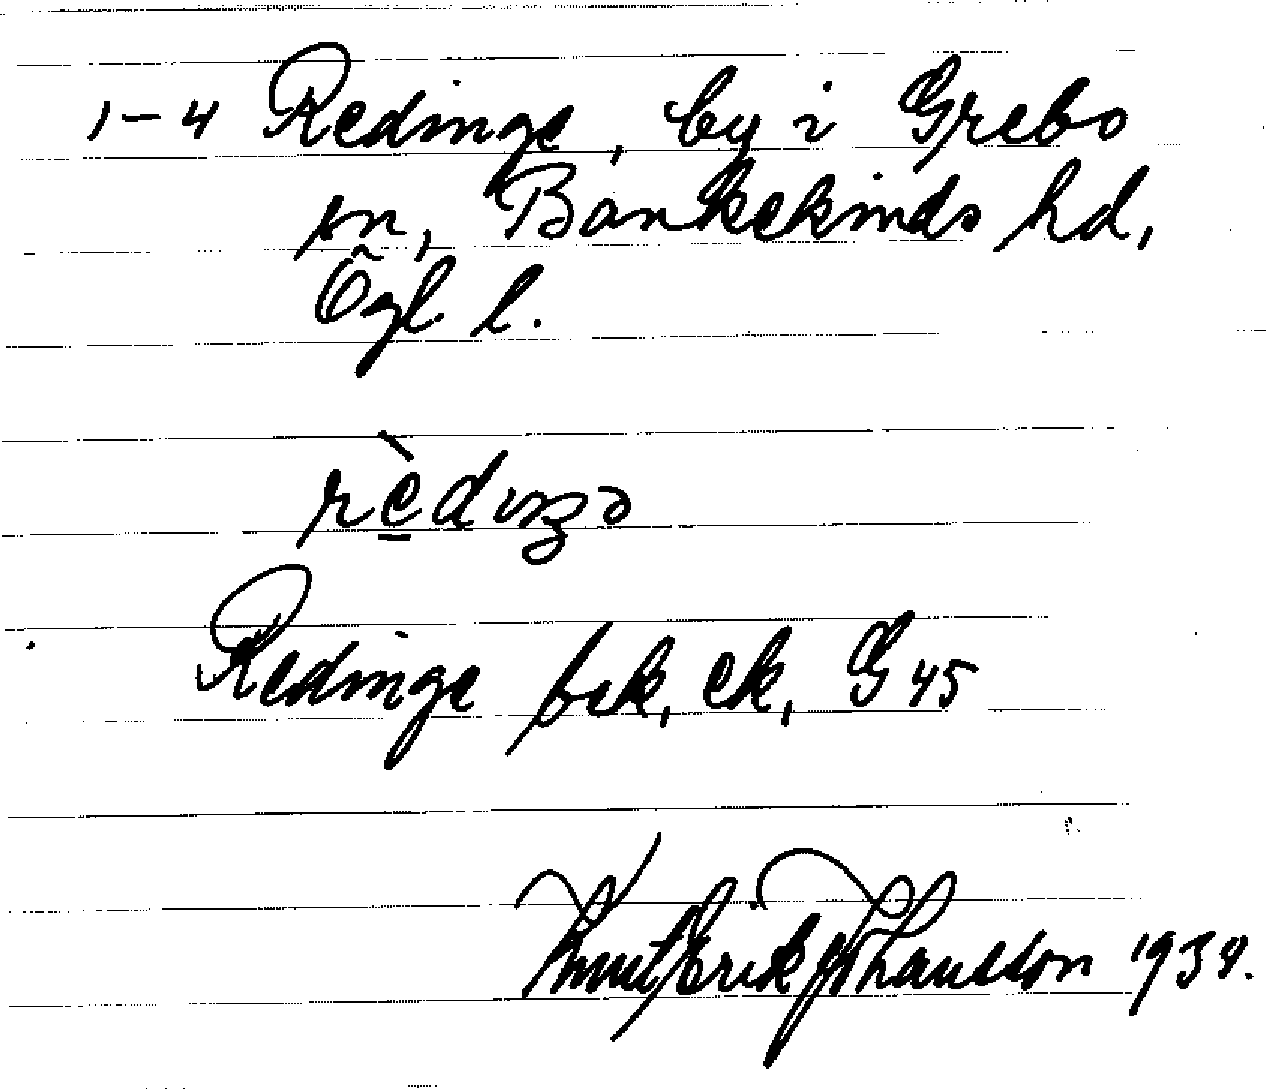 1-4 Redinge, by i Grebo
sn, Bankekinds hd,
Ögl. l.
Redinge bek, ek, G 45
Knut Erik Johansson 1934.